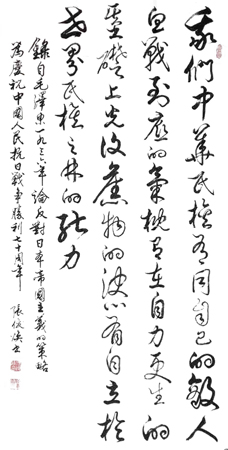 我們中華民族有同自己的敵人
血戰到底的氣概有在自力更生的
基礎上光復舊物的决心有自立於
世界民族之林的能力
錄自毛澤東一九三六年論反對日本帝國主義的策略
為慶祝中國人民抗日戰爭勝利七十周年 張